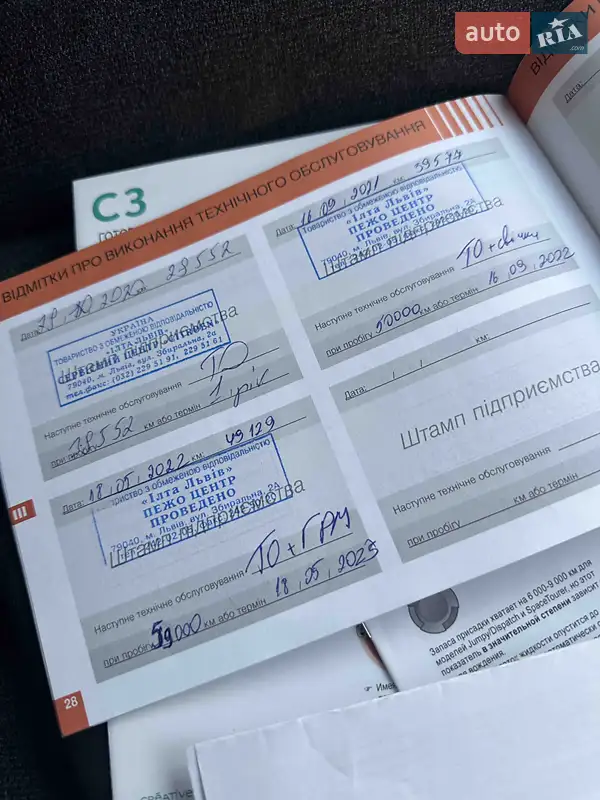 auto RIA .com
C3
ВІДМІТКИ ПРО ВИКОНАННЯ ТЕХНІЧНОГО ОБСЛУГОВУВАННЯ
Дата: 2020 км: 28552
Штамп підприємства
УКРАЇНА
ТОВАРИСТВО З ОБМЕЖЕНОЮ ВІДПОВІДАЛЬНІСТЮ
«ІЛТА ЛЬВІВ»
СЕРВІСНИЙ ЦЕНТР «СІТРОЕН»
79040, м. Львів, вул. Збиральна, 2а
тел.факс: (032) 229 51 91, 229 51 61
Наступне технічне обслуговування ТО
при пробігу 38552 км або термін 1 рік
Дата: 16.09.2021 км:
Штамп підприємства
Товариство з обмеженою відповідальністю
«Ілта Львів»
ПЕЖО ЦЕНТР
ПРОВЕДЕНО
79040, м. Львів, вул. Збиральна, 2А
Наступне технічне обслуговування ТО + свічки
при пробігу 50000 км або термін 16.09.2022
Дата: 18.05.2022 км: 49129
Штамп підприємства
Товариство з обмеженою відповідальністю
«Ілта Львів»
ПЕЖО ЦЕНТР
ПРОВЕДЕНО
79040, м. Львів, вул. Збиральна, 2А
Наступне технічне обслуговування ТО + ГРМ
при пробігу 59000 км або термін 18.05.2023
Дата: / / км:
Штамп підприємства
Наступне технічне обслуговування
при пробігу км або термін
III
28
Дата:
Запаса присадки хватает на 6 000-9 000 км для
моделей Jumpy/Dispatch и SpaceTourer, но этот
показатель в значительной степени зависит
вождения.
жидкости опустится до